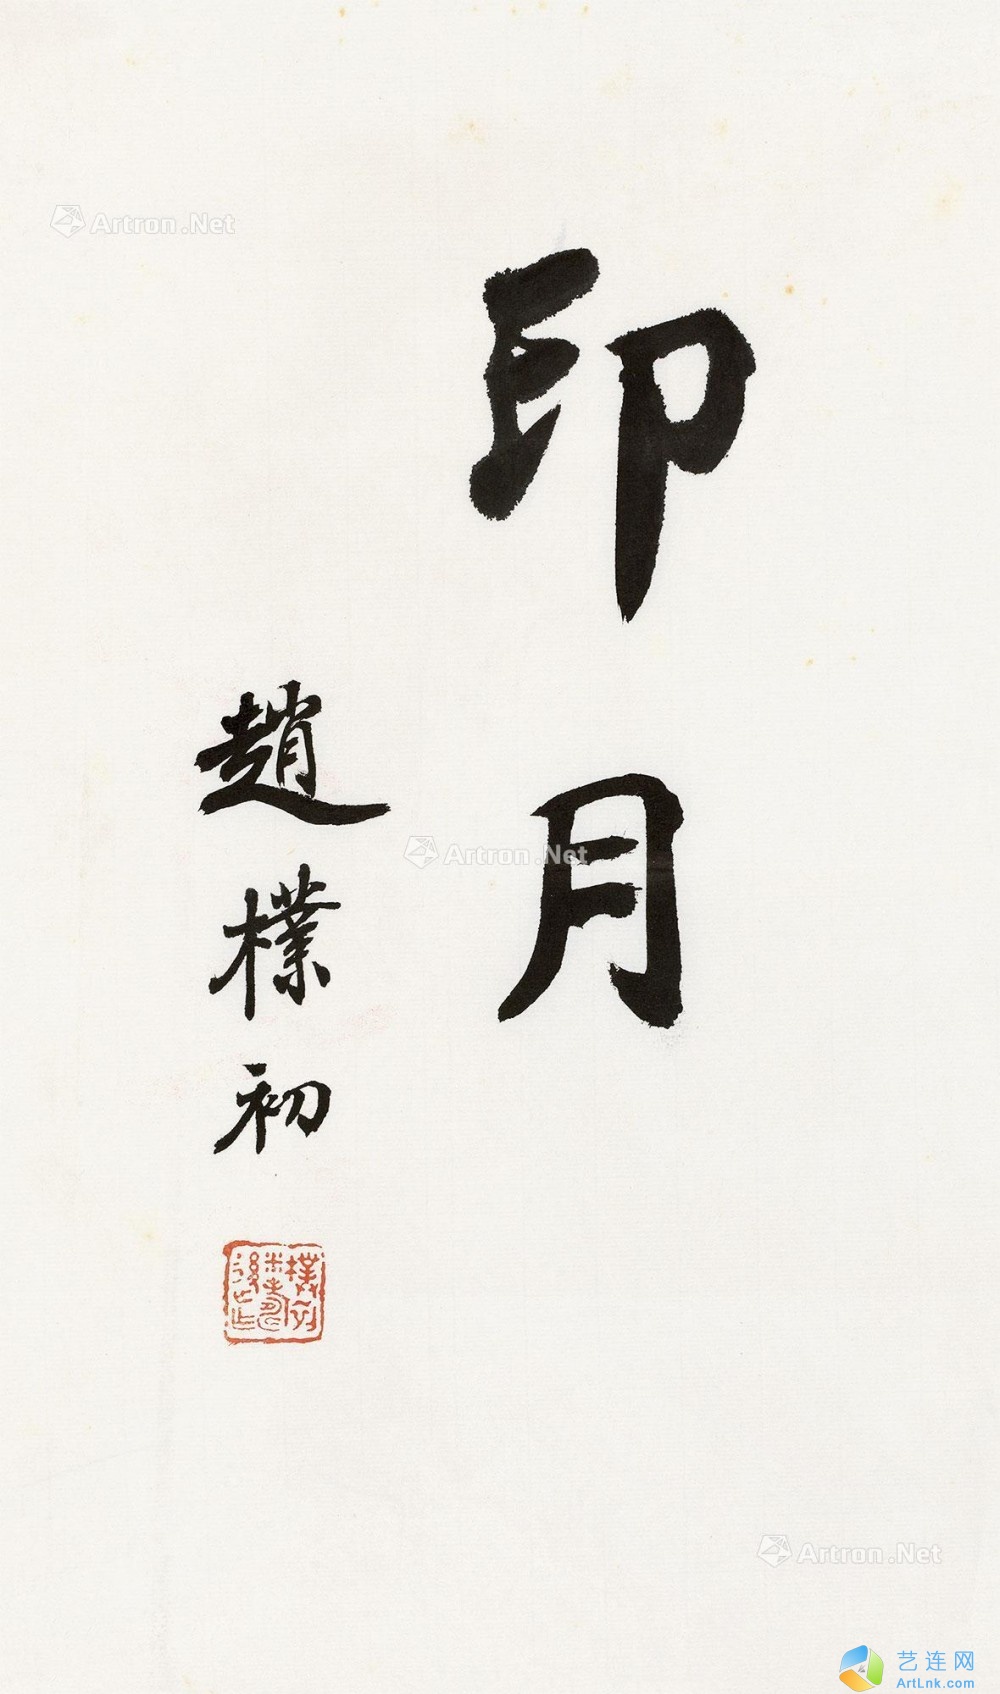 印月
趙樸初
Artron.Net
Artron.Net
Artron.Net
艺连网
ArtLnk.com